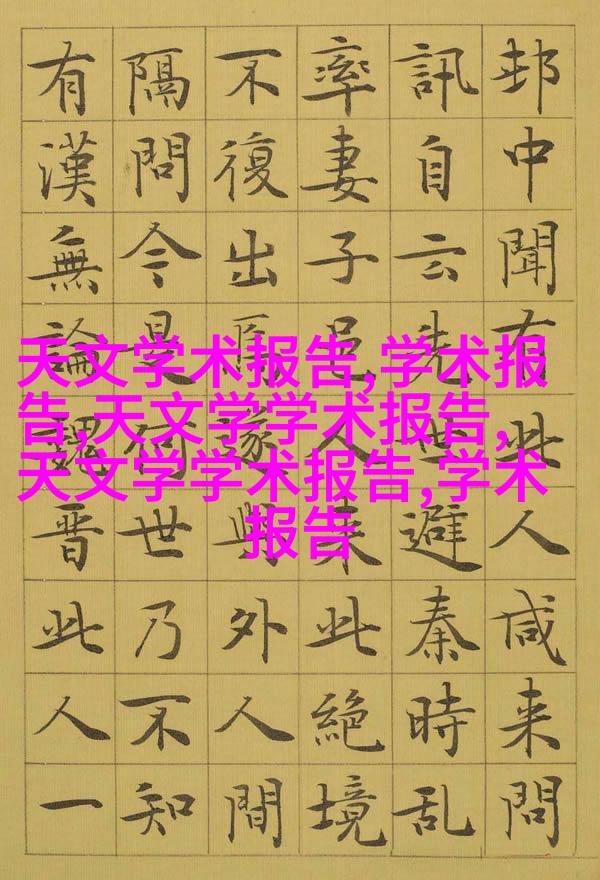 天文学术报告,学术报
告,天文学学术报告,
天文学学术报告,学术
报告
邨中聞有此人咸来問
訊自云先世避秦時乱
率妻子邑人来此絶境
不復出焉遂與外人間
隔問今是何世乃不知
有漢無論魏晋此人一